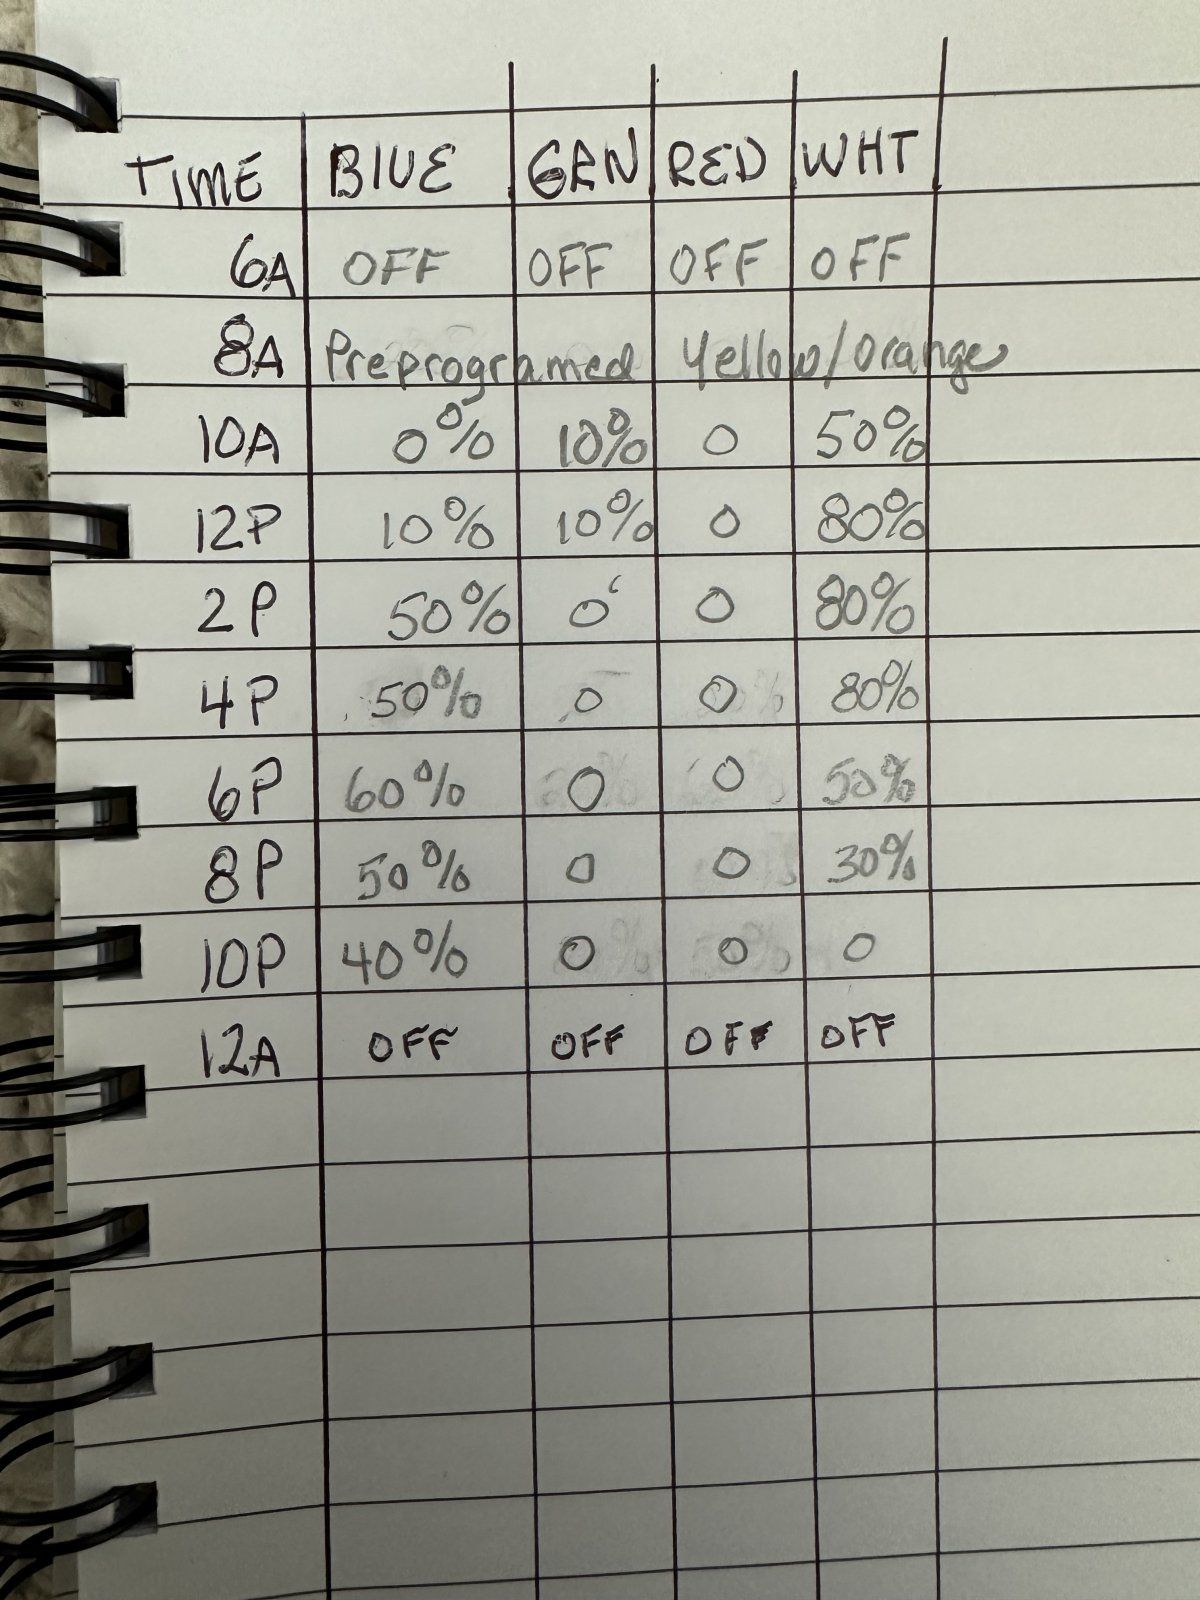 TIME BLUE GRN RED WHT
6A OFF OFF OFF OFF
8A Preprogramed Yellow/Orange
10A 0% 10% 0 50%
12P 10% 10% 0 80%
2P 50% 0 0 80%
4P 50% 0 0 80%
6P 60% 0 0 50%
8P 50% 0 0 30%
10P 40% 0 0 0
12A OFF OFF OFF OFF